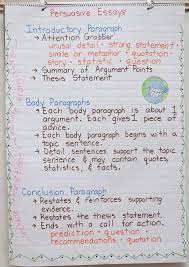 Persuasive Essays
Introductory Paragraph
→ Attention Grabber
unusual detail · strong statement
simile or metaphor · quotation
story · statistic · question
→ Summary of Argument Points
→ Thesis Statement
Body Paragraphs
→ Each body paragraph is about 1
argument. Each gives 1 piece of
advice.
→ Each body paragraph begins with a
topic sentence.
→ Detail sentences support the topic
sentence & may contain quotes,
statistics, & facts.
Conclusion Paragraph
→ Restates & reinforces supporting
evidence.
→ Restates the thesis statement.
→ Ends with a call for action.
prediction · question
recommendations · quotation